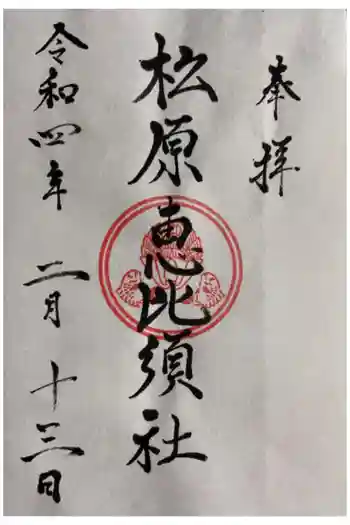 奉拝
松原恵比須社
令和四年二月十三日